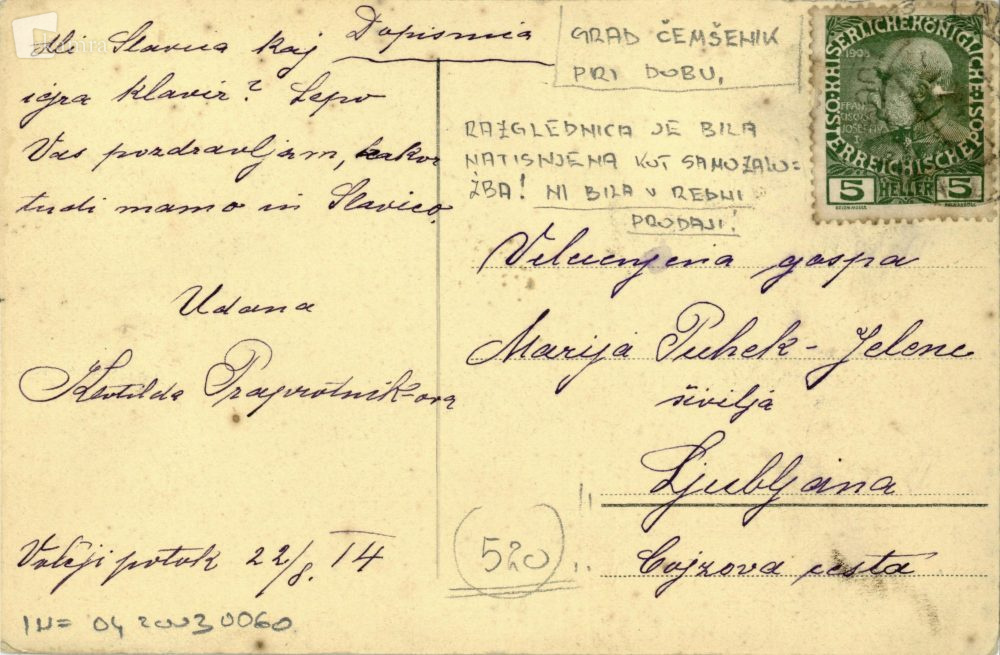 kamra
Dopisnica
Ali Slavica kaj
igra klavir? Lepo
Vas pozdravljam, kakor
tudi mamo in Slavico.
Udana
Klotilda Praprotnik-ova
Volčji potok 22/8. 14
IN= 04 20030060
GRAD ČEMŠENIK
PRI DOBU,
RAZGLEDNICA JE BILA
NATISNJENA KOT SAMOZALO-
ŽBA! NI BILA V REDNI
PRODAJI!
KAISERLICHE KÖNIGLICHE
ÖSTERREICHISCHE POST
1908
FRAN
CISCVS
JOSEF I
5 HELLER 5
Velecenjena gospa
Marija Puhek-Jelenc
šivilja
Ljubljana
Cojzova cesta
520